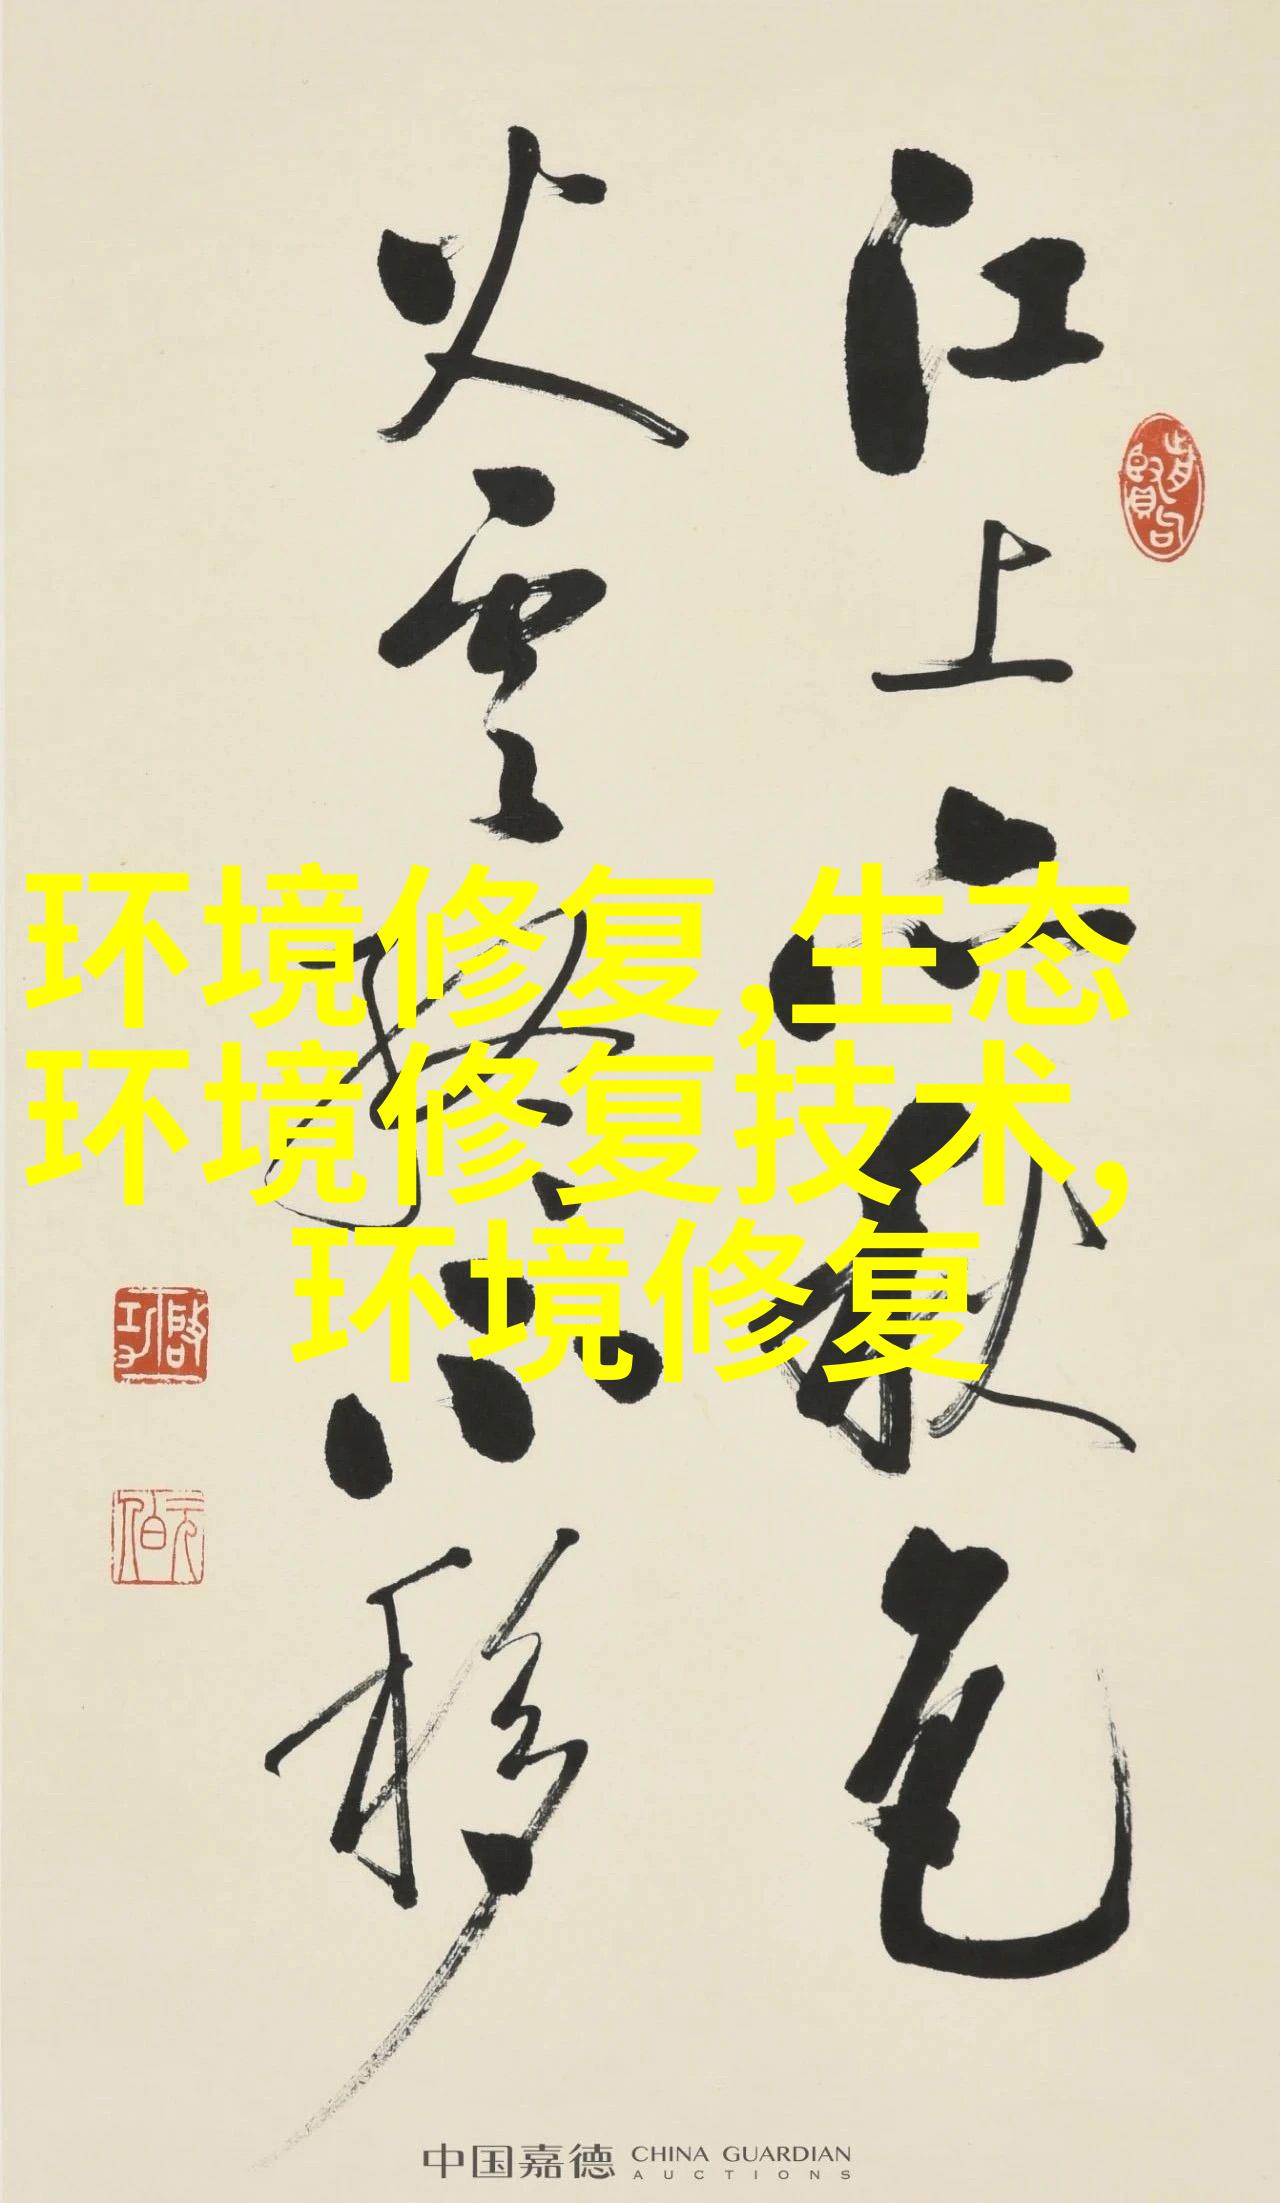 江上亦秋色
火雲終不移
环境修复,生态
环境修复技术,
环境修复
啓功
元伯
中国嘉德 CHINA GUARDIAN
AUCTIONS